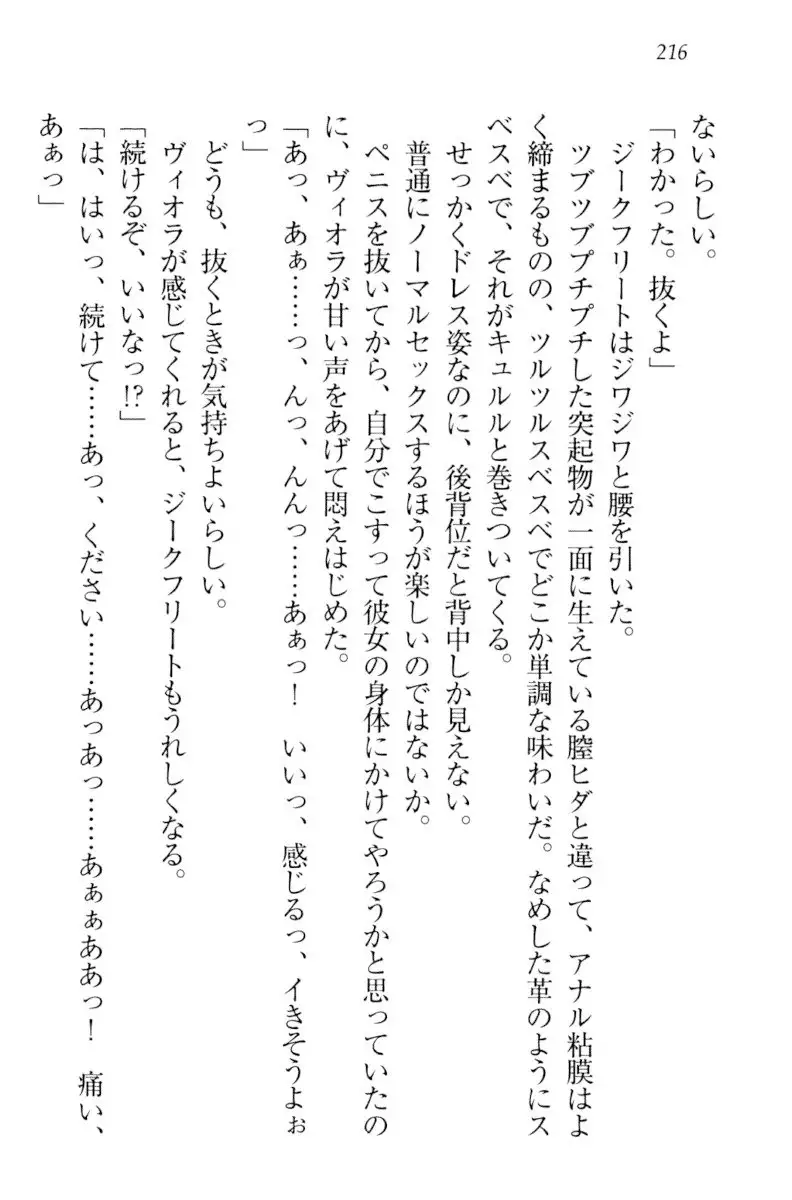 216
ないらしい。
「わかった。抜くよ」
ジークフリートはジワジワと腰を引いた。
ツブツブプチプチした突起物が一面に生えている膣ヒダと違って、アナル粘膜はよ
く締まるものの、ツルツルスベスベでどこか単調な味わいだ。なめした革のようにス
ベスベで、それがキュルルと巻きついてくる。
せっかくドレス姿なのに、後背位だと背中しか見えない。
普通にノーマルセックスするほうが楽しいのではないか。
ペニスを抜いてから、自分でこすって彼女の身体にかけてやろうかと思っていたの
に、ヴィオラが甘い声をあげて悶えはじめた。
「あっ、あぁ……っ、んっ、んんっ……あぁっ！　いいっ、感じるっ、イきそうよぉ
っ」
どうも、抜くときが気持ちよいらしい。
ヴィオラが感じてくれると、ジークフリートもうれしくなる。
「続けるぞ、いいなっ!?」
「は、はいっ、続けて……あっ、ください……あっあっ……あぁぁああっ！　痛い、
あぁっ」